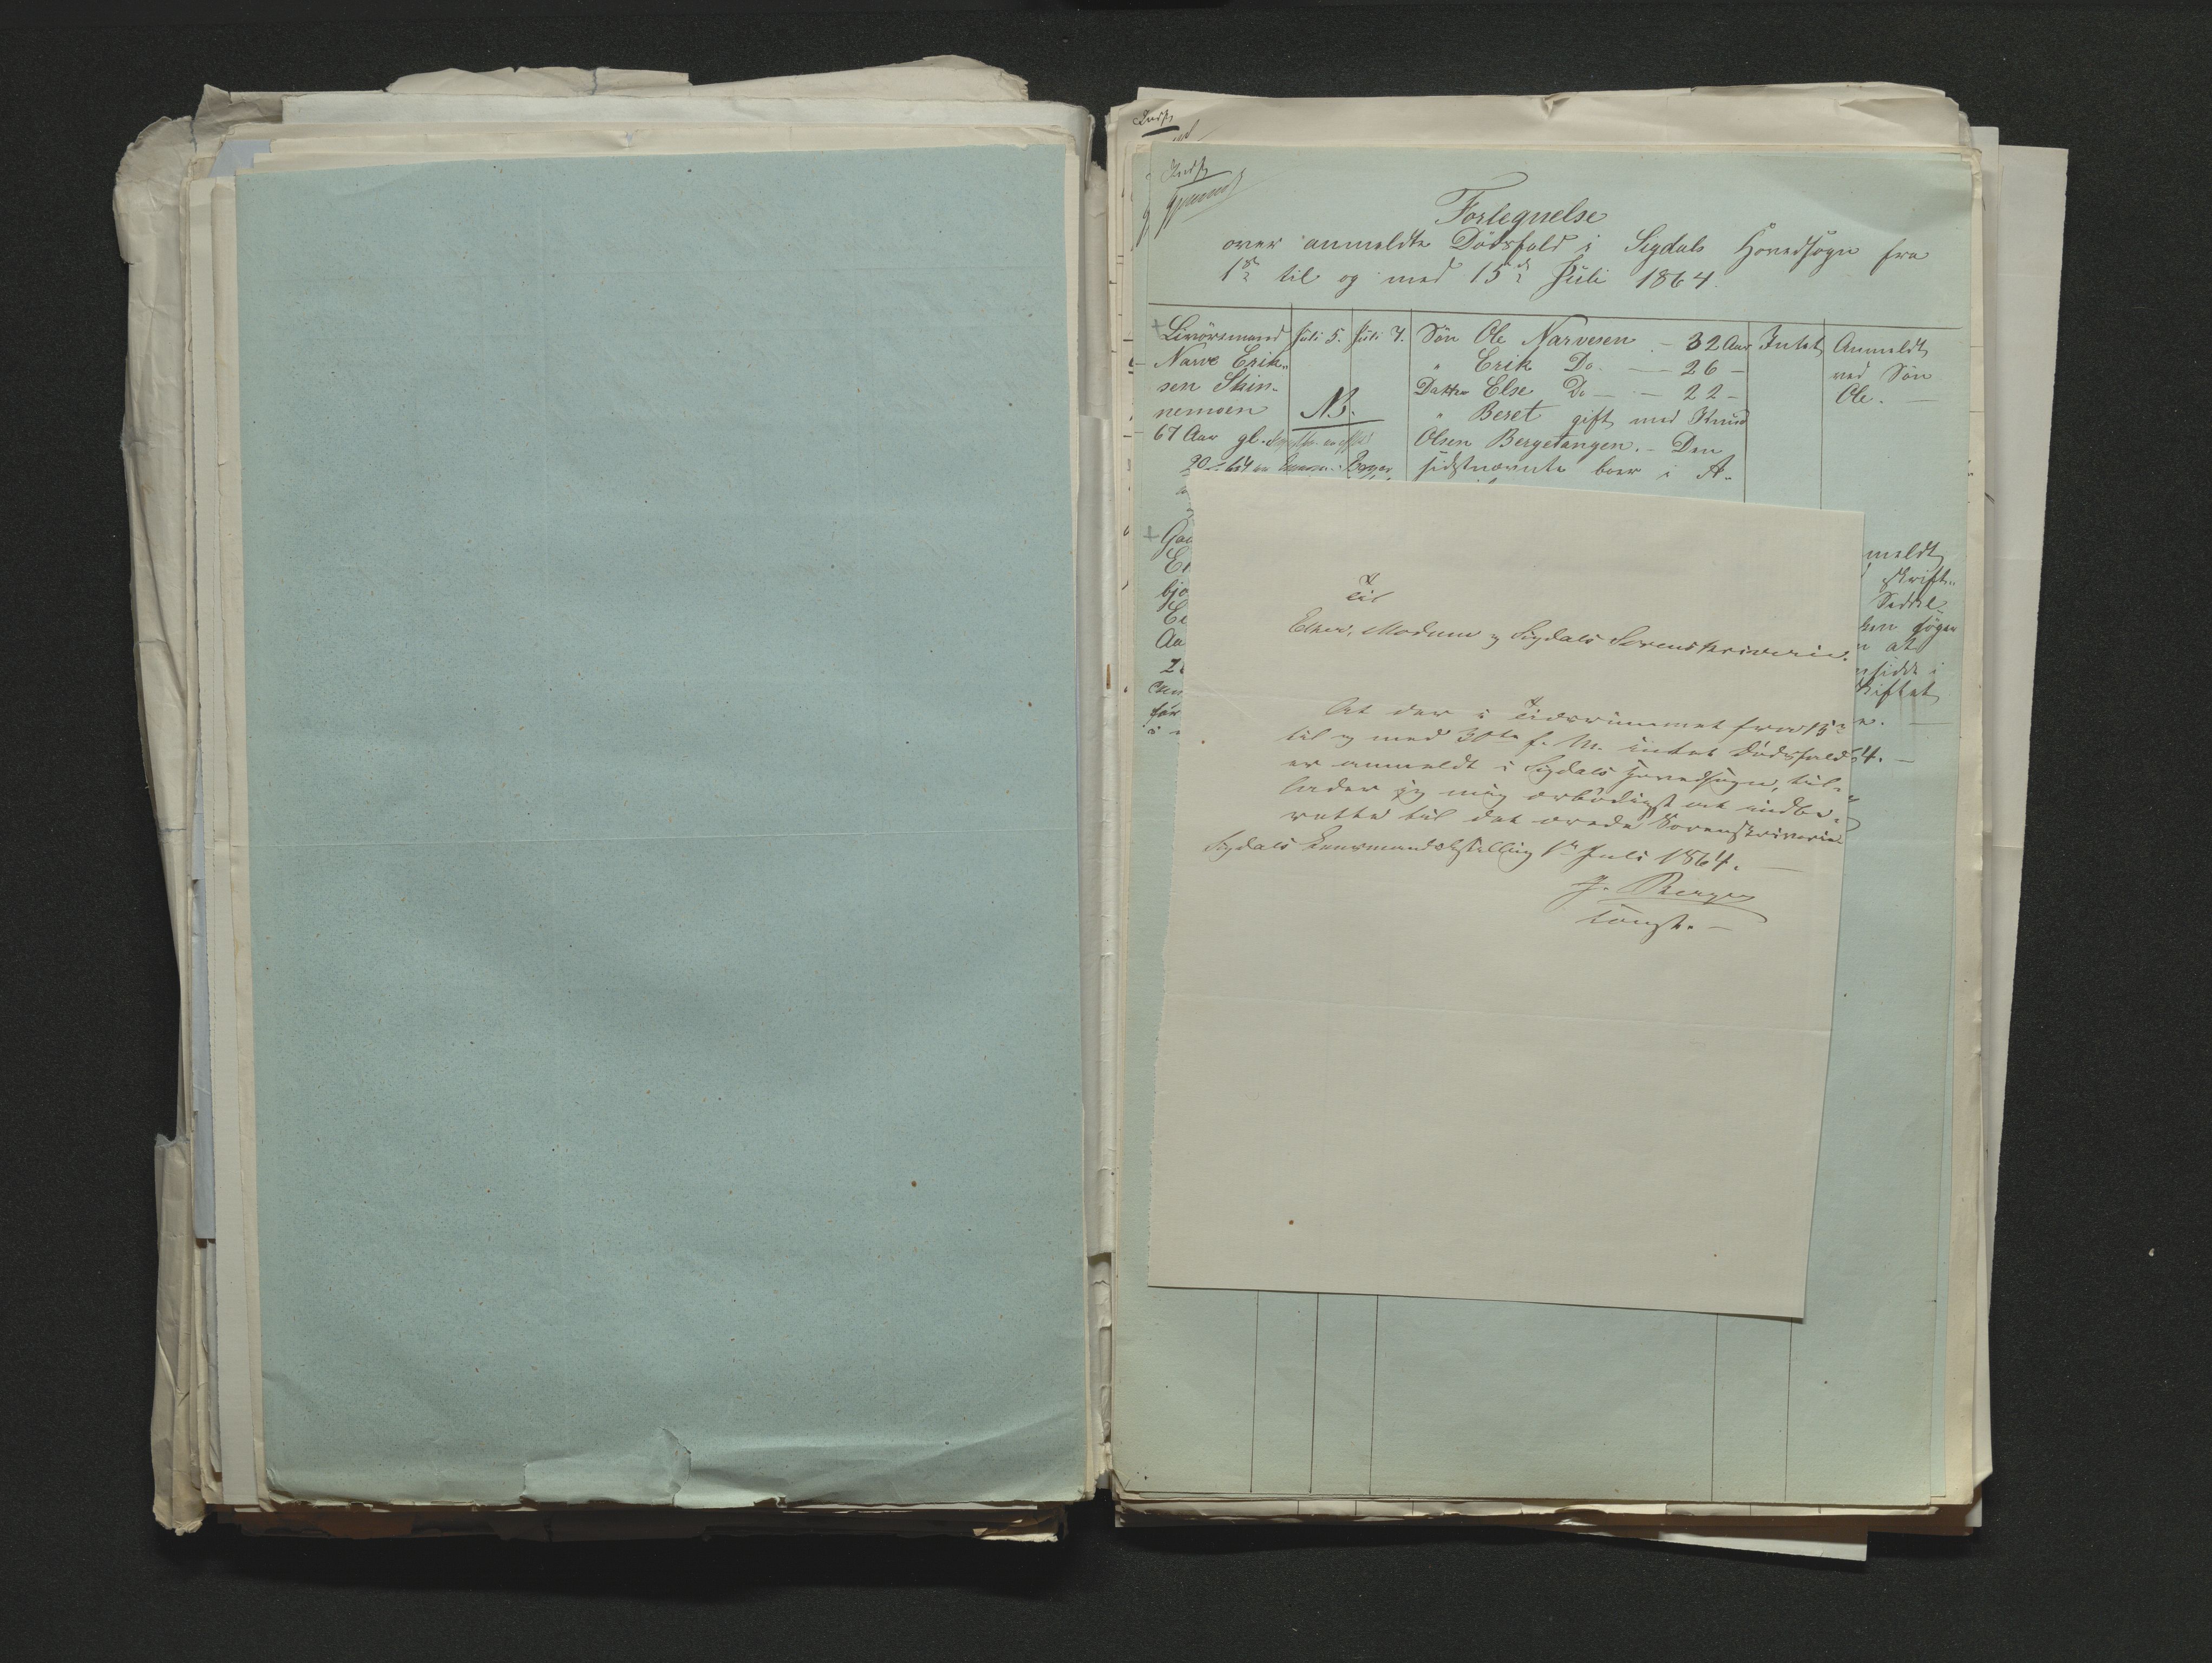 Indf.
Indf.
Fortegnelse
over anmeldte Dödsfald i Sigdals Hovedsogn fra
1ste til og med 15de Juli 1864.
Livörsmand
Narve Erik-
sen Skin-
nemoen
67 Aar gl.
Juli 5.
Juli 7.
NB.
Sön Ole Narvesen — 32 Aar
" Erik Do. — 26 —
Datter Else Do — 22 —
" Beret gift med Knud
Olsen Bergetangen. — Den
sidstnævnte boer i A-
Intet
Anmeldt
ved Sön
Ole. —
meldt
skrift-
Seddel
söger
at
sidde i
skiftet
Til
Eker, Modum og Sigdals Sorenskriveri.
At der i Tidsrummet fra 15de
til og med 30te f. M. intet Dödsfald
er anmeldt i Sigdals Hovedsogn, til-
lader jeg mig ærbödigst at indbe-
rette til det ærede Sorenskriveri.
Sigdals Lensmandsbestilling 1ste Juli 1864. —
J. Berger
konst. —